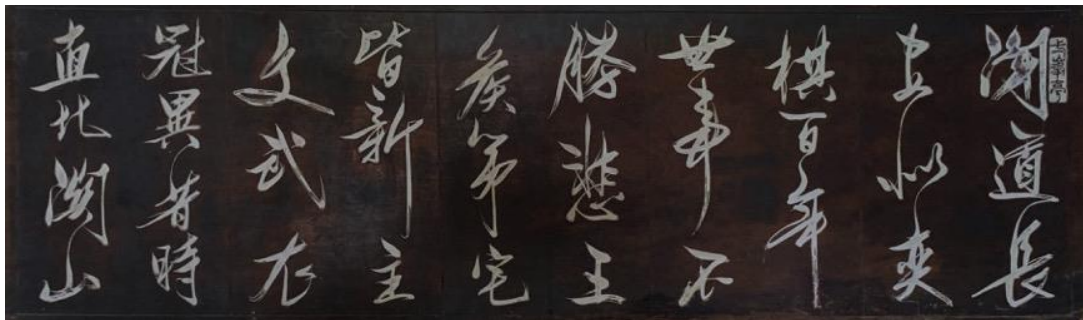 聞道長
安似奕
棋百年
世事不
勝悲王
侯第宅
皆新主
文武衣
冠異昔時
直北關山